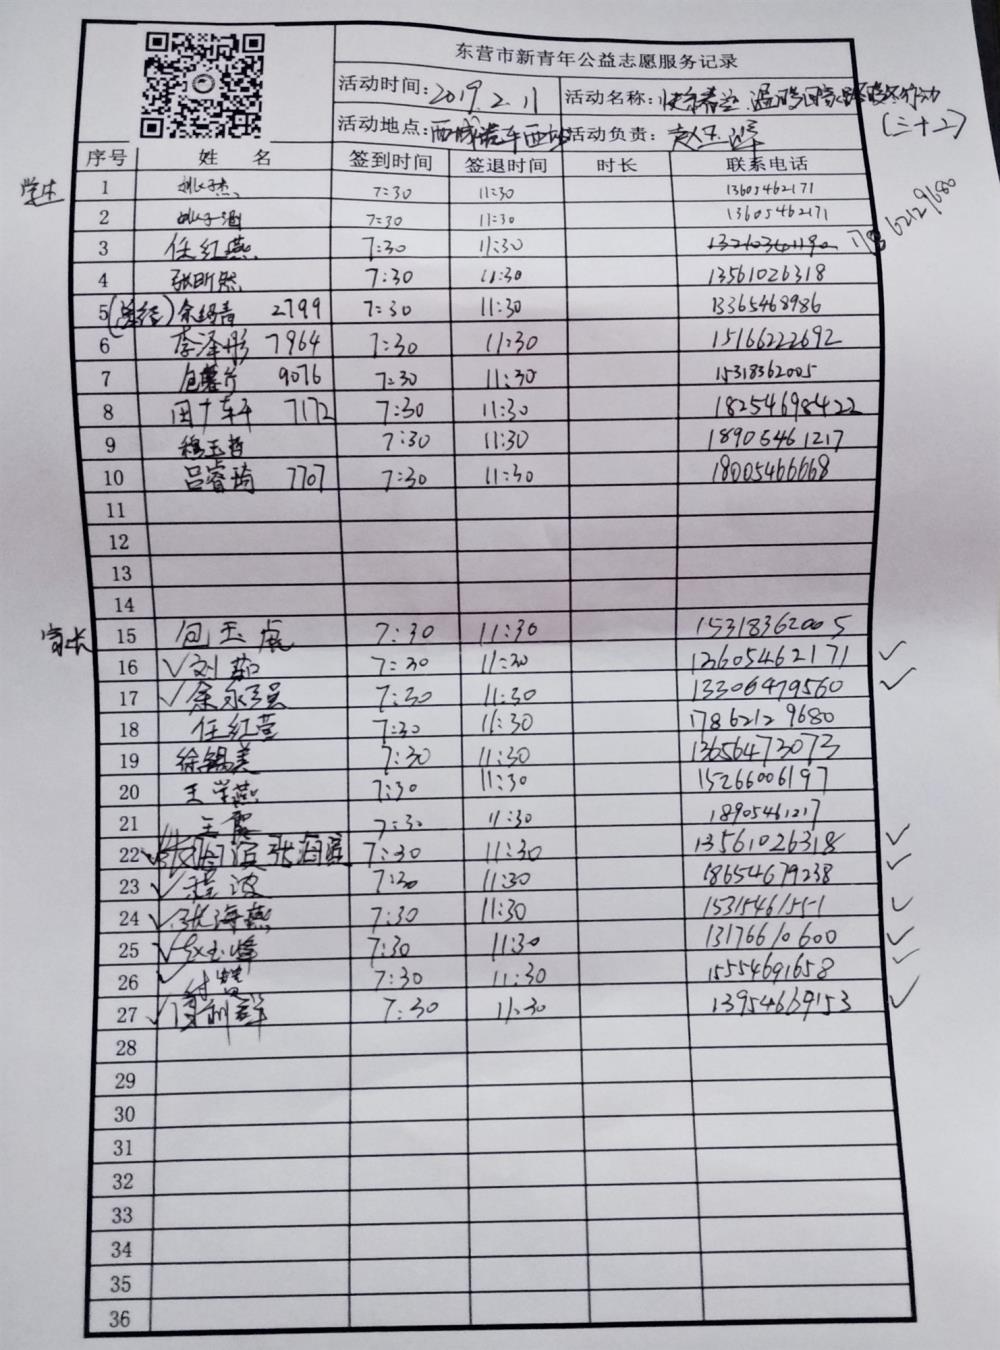 东营市新青年公益志愿服务记录
活动时间: 2019.2.11 活动名称:
(三十二)
活动地点: 西城汽车西站 活动负责: 赵玉峰
序号 姓 名 签到时间 签退时间 时长 联系电话
学生 1 7:30 11:30 13605462171
2 7:30 11:30 13605462171
3 任红燕 7:30 11:30 17862129680
4 张昕然 7:30 11:30 13561026318
5 (总结) 余绍青 2799 7:30 11:30 13365468986
6 李泽彤 7964 7:30 11:30 15166222692
7 包薯片 9076 7:30 11:30 15318362005
8 田 7172 7:30 11:30 18254698422
9 程玉哲 7:30 11:30 18905461217
10 吕睿琦 7707 7:30 11:30 18005466668
11
12
13
14
家长 15 包玉虎 7:30 11:30 15318362005
16 ✓刘茹 7:30 11:30 13605462171 ✓
17 ✓余永强 7:30 11:30 13306479560 ✓
18 任红莹 7:30 11:30 17862129680
19 徐锡美 7:30 11:30 13656473073
20 王学燕 7:30 11:30 15266006197
21 王霞 7:30 11:30 18905461217
22 ✓ 张海滨 7:30 11:30 13561026318 ✓
23 ✓程波 7:30 11:30 18654679238 ✓
24 ✓张海燕 7:30 11:30 15315461511 ✓
25 ✓赵玉峰 7:30 11:30 13176610600 ✓
26 ✓ 7:30 11:30 15554691658 ✓
27 ✓ 7:30 11:30 13954669153 ✓
28
29
30
31
32
33
34
35
36